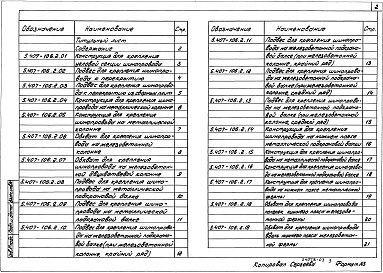 2
Обозначение Наименование Стр.
Титульный лист
Содержание 2
5.407-106.2.01 Конструкция для крепления
угловой секции шинопровода 3
5.407-106.2.02 Подвес для крепления шинопро-
вода к перекрытию 4
5.407-106.2.03 Подвес для крепления шинопровода
5
5.407-106.2.04 Конструкция для крепления шино-
провода на металлической колонне 6
5.407-106.2.05 Конструкция для крепления
шинопровода на металлической
колонне 7
5.407-106.2.06 Обхват для крепления шинопро-
вода на железобетонной
колонне 8
5.407-106.2.07 Обхват для крепления
шинопровода на железобетон-
ной двухветвевой колонне 9
5.407-106.2.08 Подвес для крепления шино-
провода на металлической
подкрановой балке 10
5.407-106.2.09 Подвес для крепления шино-
провода на металлической
подкрановой балке 11
5.407-106.2.10 Подвес для крепления шинопрово-
да на железобетонной подкрано-
вой балке (при железобетонной
колонне, крайний ряд) 12
Обозначение Наименование Стр.
5.407-106.2.11 Подвес для крепления шинопро-
вода на железобетонной подкрано-
вой балке (при железобетонной
колонне, крайний ряд) 13
5.407-106.2.12 Подвес для крепления шинопрово-
да на железобетонной подкрановой
балке (при железобетонной
колонне, средний ряд) 14
5.407-106.2.13 Подвес для крепления шинопрово-
да на железобетонной подкрано-
вой балке (при железобетонной
колонне, средний ряд) 15
5.407-106.2.14 Конструкция для крепления
шинопровода на нижнем поясе
металлической подкрановой балки 16
5.407-106.2.15 Конструкция для крепления шинопро-
вода на металлической подкрановой балке 17
5.407-106.2.16 Конструкция для крепления шинопрово-
да на железобетонной подкрановой балке 18
5.407-106.2.17 Конструкция для крепления шинопро-
вода на нижнем поясе металлической
фермы 19
5.407-106.2.18 Обхват для крепления шинопровода
фермы 20
5.407-106.2.19 Обхват для крепления шинопро-
вода
фермы 21
Копировал Сергеева Формат А3